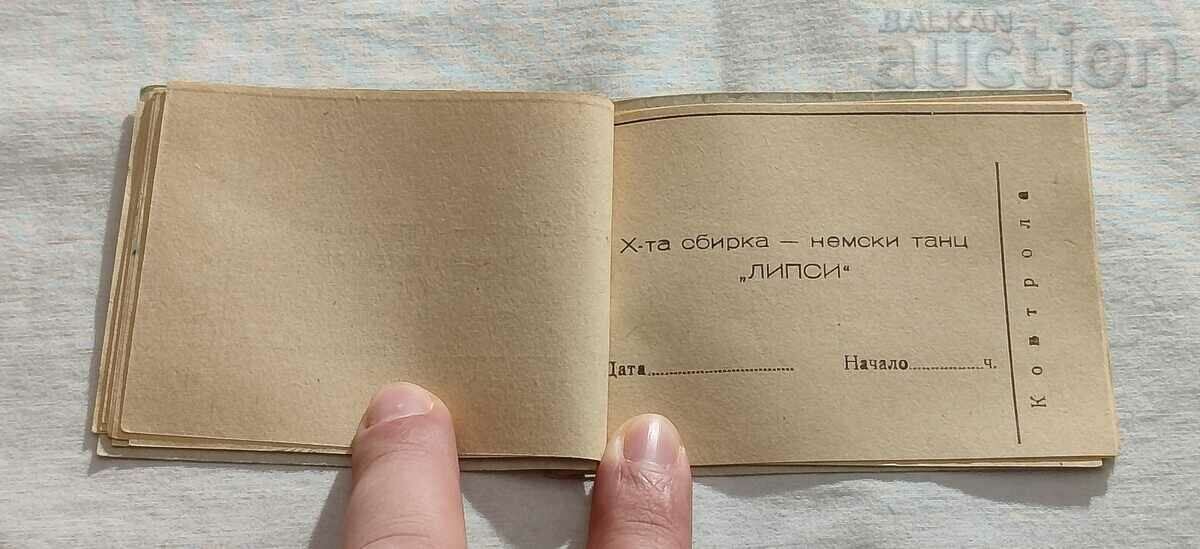 BALKAN
auction
X-та сбирка — немски танц
„ЛИПСИ“
Дата....................
Начало..............ч.
Контрола